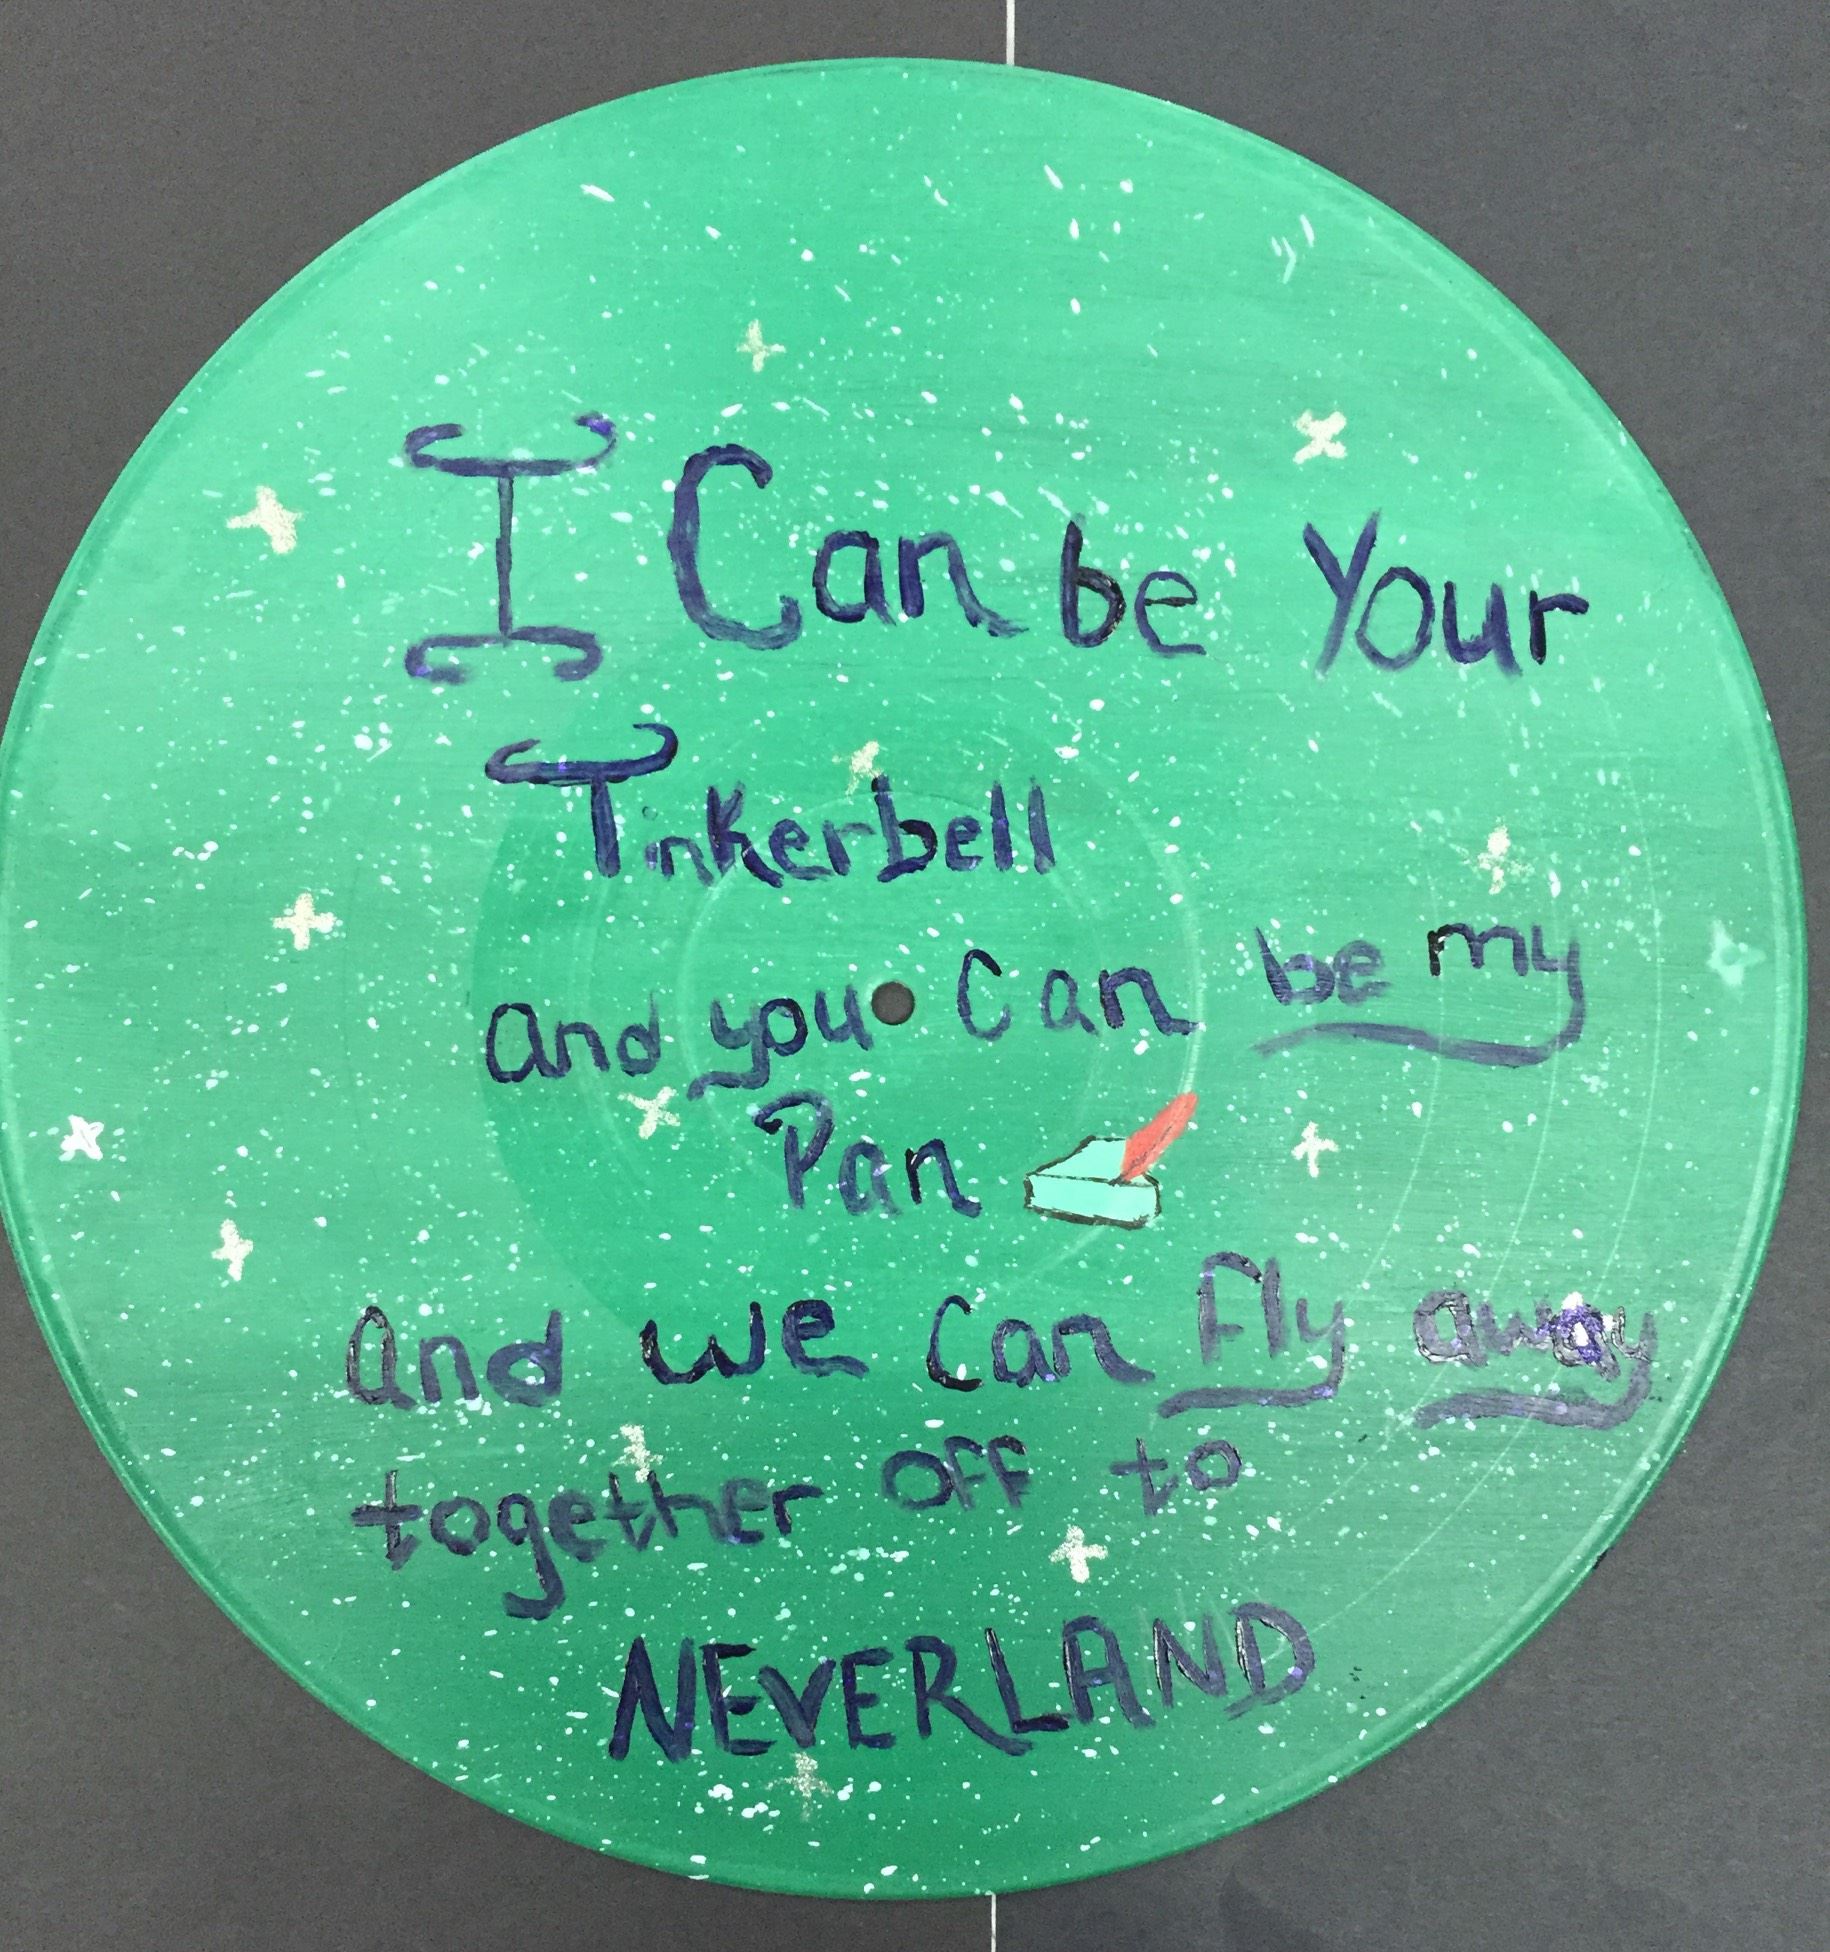 I Can be Your
Tinkerbell
and you can be my
Pan
And we can Fly away
together off to
NEVERLAND